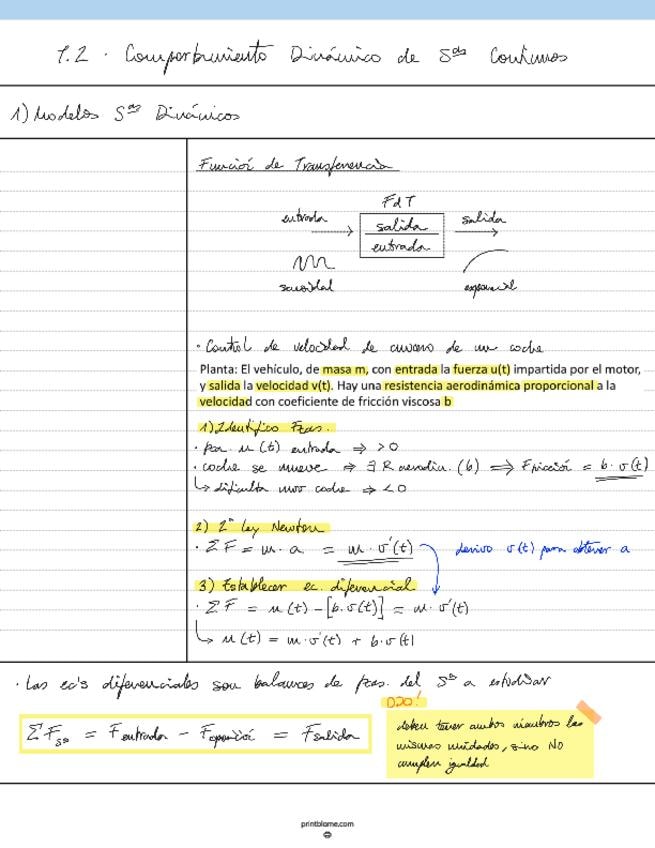 1.2 · Comportamiento Dinámico de Sᵃˢ Continuos
1) Modelos Sᵃˢ Dinámicos
Función de Transferencia
FdT
entrada
salida
entrada
salida
senoidal
exponencial
· Control de velocidad de crucero de un coche
Planta: El vehículo, de masa m, con entrada la fuerza u(t) impartida por el motor,
y salida la velocidad v(t). Hay una resistencia aerodinámica proporcional a la
velocidad con coeficiente de fricción viscosa b
1) Identifico Fzas.
· Par u(t) entrada ⇒ >0
· coche se mueve ⇒ ∃ R aerodin. (b) ⟹ Fricción = b·v(t)
↳ dificulta mov coche ⇒ <0
2) 2ª ley Newton
· ΣF = m·a = m·v'(t) derivo v(t) para obtener a
3) Establecer ec. diferencial
· ΣF = u(t) - [b·v(t)] = m·v'(t)
↳ u(t) = m·v'(t) + b·v(t)
· Las ec's diferenciales son balances de fzas. del Sᵃ a estudiar
OJO!
ΣFₛₐ = Fentrada - Foposición = Fsalida
deben tener ambos miembros las
mismas unidades, sino NO
cumplen igualdad
printblame.com